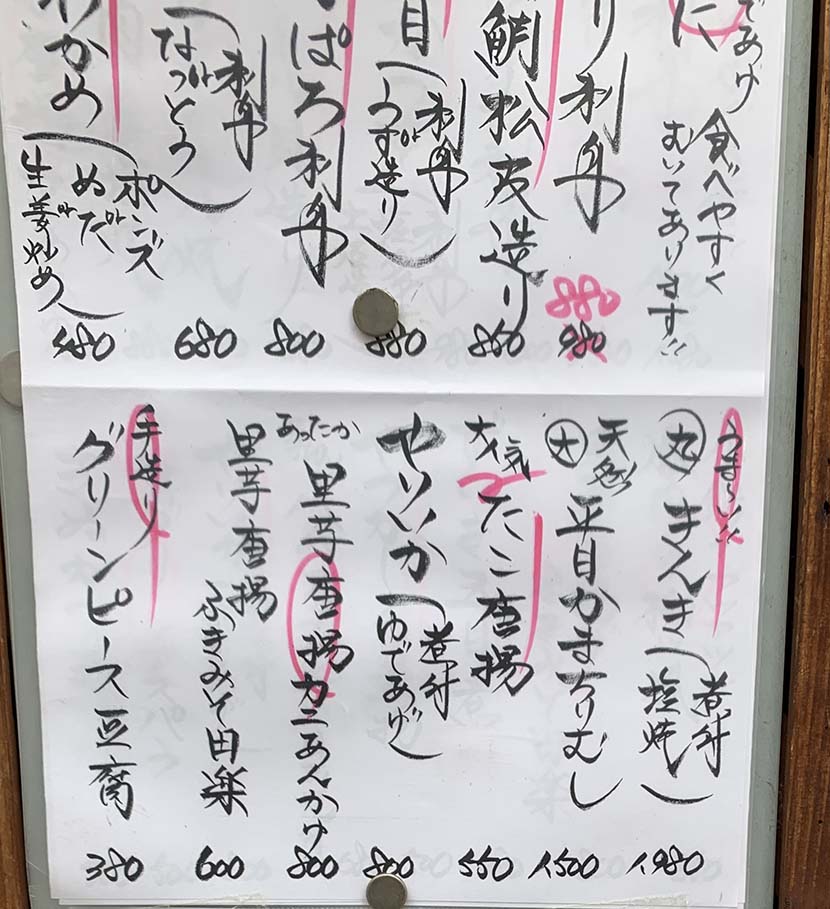 であげ
に
食べやすく
むいてあります!!
り刺身
880
980
鯛松皮造り
860
目(刺身
うす造り)
880
ぱろ刺身
800
(刺身
なっとう)
680
わかめ(ポンズ
ぬた
生姜炒め)
480
うま〜い!!
丸 きんき(煮付
塩焼)
1,980
天然
大 平目かまちりむし
1,500
大人気
たこ唐揚
550
やりいか(煮付
ゆであげ)
800
あったか
里芋唐揚カニあんかけ
800
里芋唐揚
ふきみそ田楽
600
手造り
グリーンピース豆腐
380